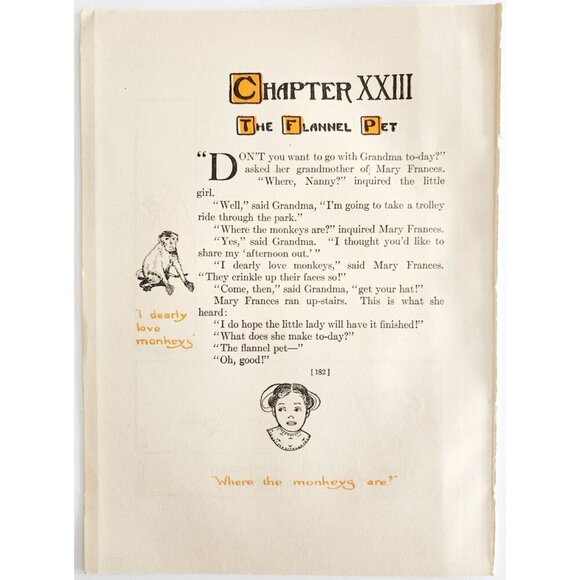 CHAPTER XXIII
THE FLANNEL PET
"DON'T you want to go with Grandma to-day?"
asked her grandmother of Mary Frances.
"Where, Nanny?" inquired the little
girl.
"Well," said Grandma, "I'm going to take a trolley
ride through the park."
"Where the monkeys are?" inquired Mary Frances.
"Yes," said Grandma. "I thought you'd like to
share my 'afternoon out.'"
"I dearly love monkeys," said Mary Frances.
"They crinkle up their faces so!"
"Come, then," said Grandma, "get your hat!"
Mary Frances ran up-stairs. This is what she
heard:
"I do hope the little lady will have it finished!"
"What does she make to-day?"
"The flannel pet—"
"Oh, good!"
[182]
"I dearly
love
monkeys"
"Where the monkeys are?"